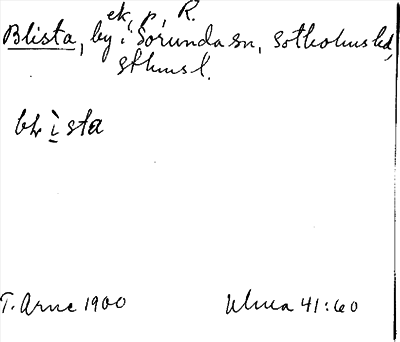 ek, p, R.
Blista, by i Sorunda sn, Sotholms hd,
sthms l.
blista
T. Arne 1900 Ulma 41:60